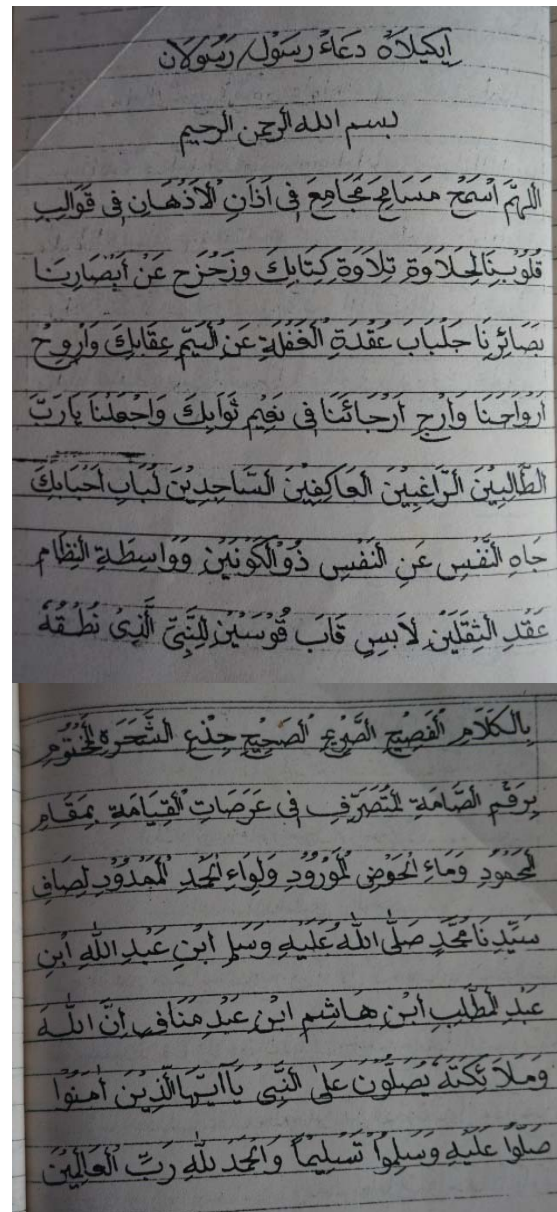 اِيكيلاَهْ دعَاءْ رسَوْل/رَسُوْلاَن
بسم الله الرحمن الرحيم
اللهمَّ اسْمَحْ مَسَامِحَ مَجَامِعَ فِى اَذَانِ الْاَذْهَانِ فِى قَوَالِبِ
قُلُوْبِنَا لِحَلاَوَةِ تِلاَوَةِ كِتَابِكَ وزَحْزَحْ عَنْ اَبْصَارِنَا
بَصَائِرِنَا جَلْبَابَ عُقْدَةِ الْغَفْلَةِ عَنْ اَلِيْمِ عِقَابِكَ وَارْوِحْ
اَرْوَاحَنَا وَارْجِ اَرْجَائَنَا فِى نَعِيْمِ ثَوَابِكَ وَاجْعَلْنَا يَارَبِّ
الطَّالِبِيْنَ الرَّاغِبِيْنَ الْعَاكِفِيْنَ السَّاجِدِيْنَ لُبَابِ اَحْبَابِكَ
جَاهِ النَّفْسِ عَنِ النَفْسِ ذُوْالْكَوْنَيْنِ وَوَاسِطَةِ النِظَامِ
عَقْدِ الثِقَلَيْنِ لاَبِسِ قَابَ قُوْسَيْنِ لِلنَّبِىِّ الَّذِىْ نُطْقُهُ
بِالْكَلاَمِ الْفَصِيْحِ الصَّرِيْحِ الصَحِيْحِ جِذْعِ الشَّجَرَةِ الْمَخْتُوْمِ
بِرَقْمِ الصَّامَةِ الْمُتَصَرِّفِ فِى عَرَصَاتِ الْقِيَامَةِ بِمَقَامِ
الْمَحْمُوْدِ وَمَاءِ الْحَوْضِ الْمَوْرُوْدِ وَلِوَاءِ الْحَمْدِ الْمَمْدُوْدِ لِصَافِ
سَيِّدِنَا مُحَمَّدٍ صَلَّى اللهُ عَلَيْهِ وَسَلَم ابْنِ عَبْدِ اللهِ ابْنِ
عَبْدِ الْمطَّلِبِ ابْنِ هَاشِم ابْنِ عَبْدِ مَنَافِ اِنَّ اللهَ
وَمَلاَئِكَتَهُ يُصَلُّوْنَ عَلَى النَّبِىْ يَآاَيُّهَا الَّذِيْنَ اٰمَنُوْا
صَلُّوْا عَلَيْهِ وَسَلِمُوْا تَسْلِيْماً وَالْحَمْدُ للهِ رَبِّ الْعَالَمِيْنَ